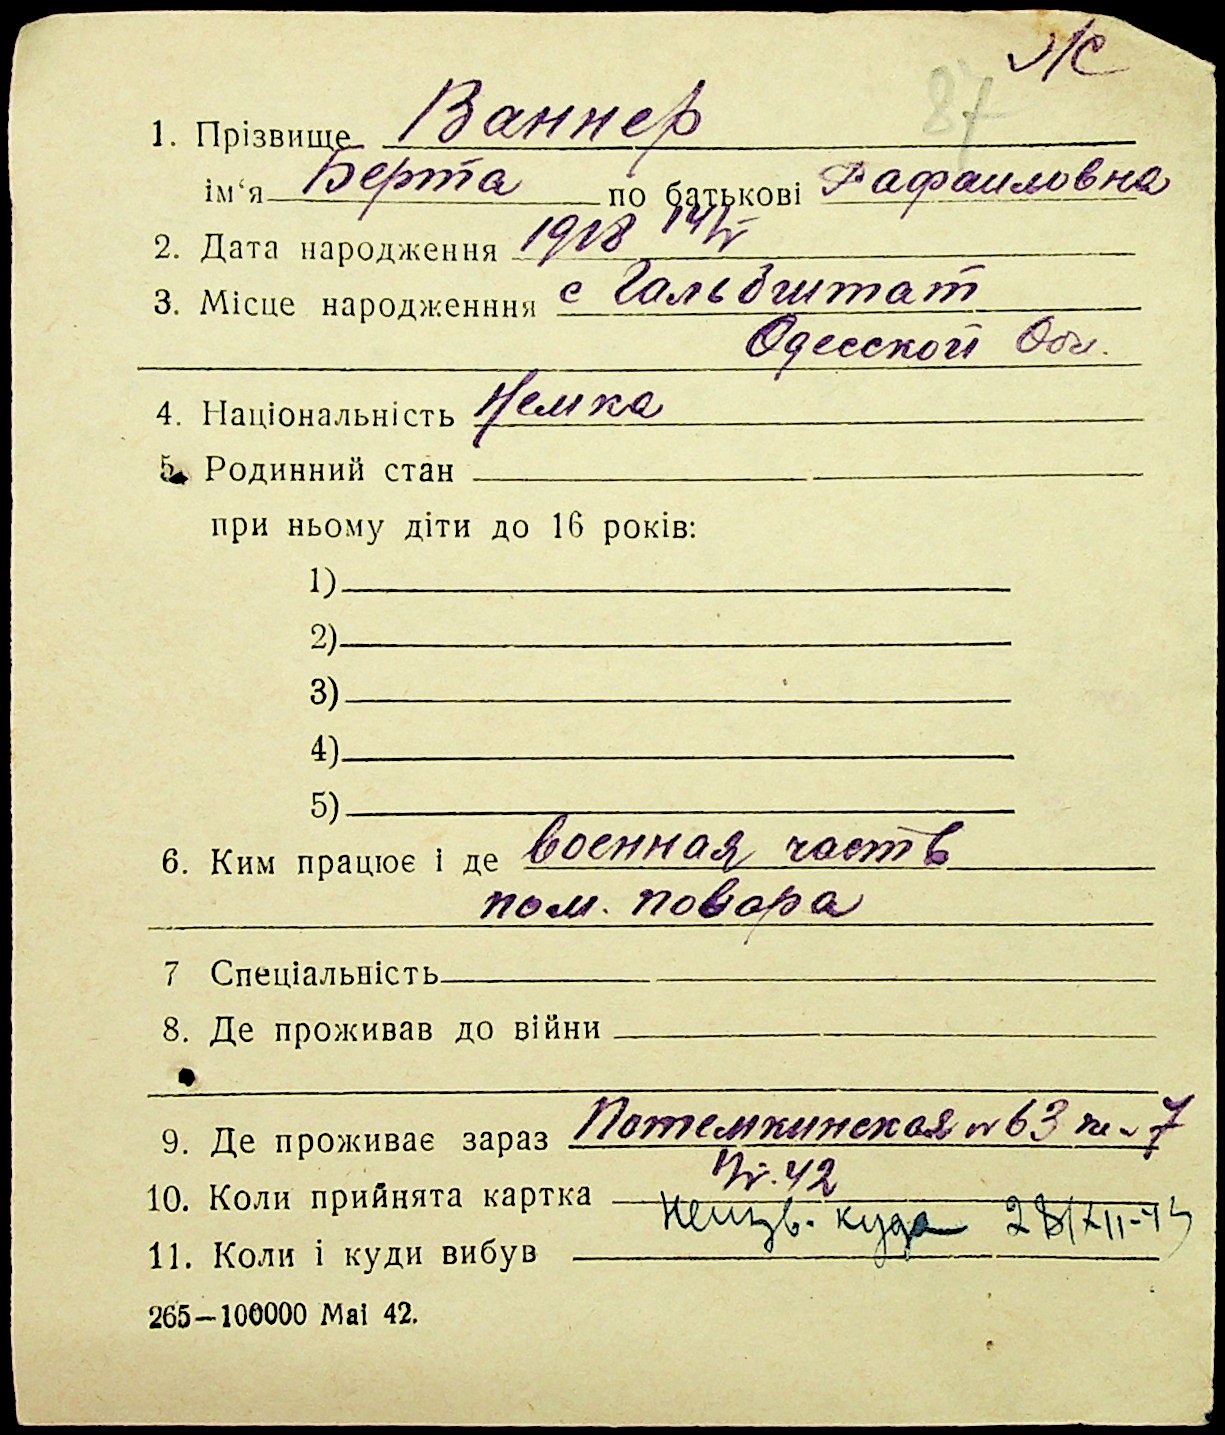 Ж
87
1. Прізвище Ваннер
ім‘я Берта по батькові Рафаиловна
2. Дата народження 1918 14/V
3. Місце народженння с Гальбштат
Одесской Обл.
4. Національність Немка
5. Родинний стан
при ньому діти до 16 років:
1)
2)
3)
4)
5)
6. Ким працює і де военная часть
пом. повара
7 Спеціальність
8. Де проживав до війни
9. Де проживає зараз Потемкинская № 63 7
10. Коли прийнята картка 42
11. Коли і куди вибув Неизв. куда 28/XII-43
265—100000 Маі 42.